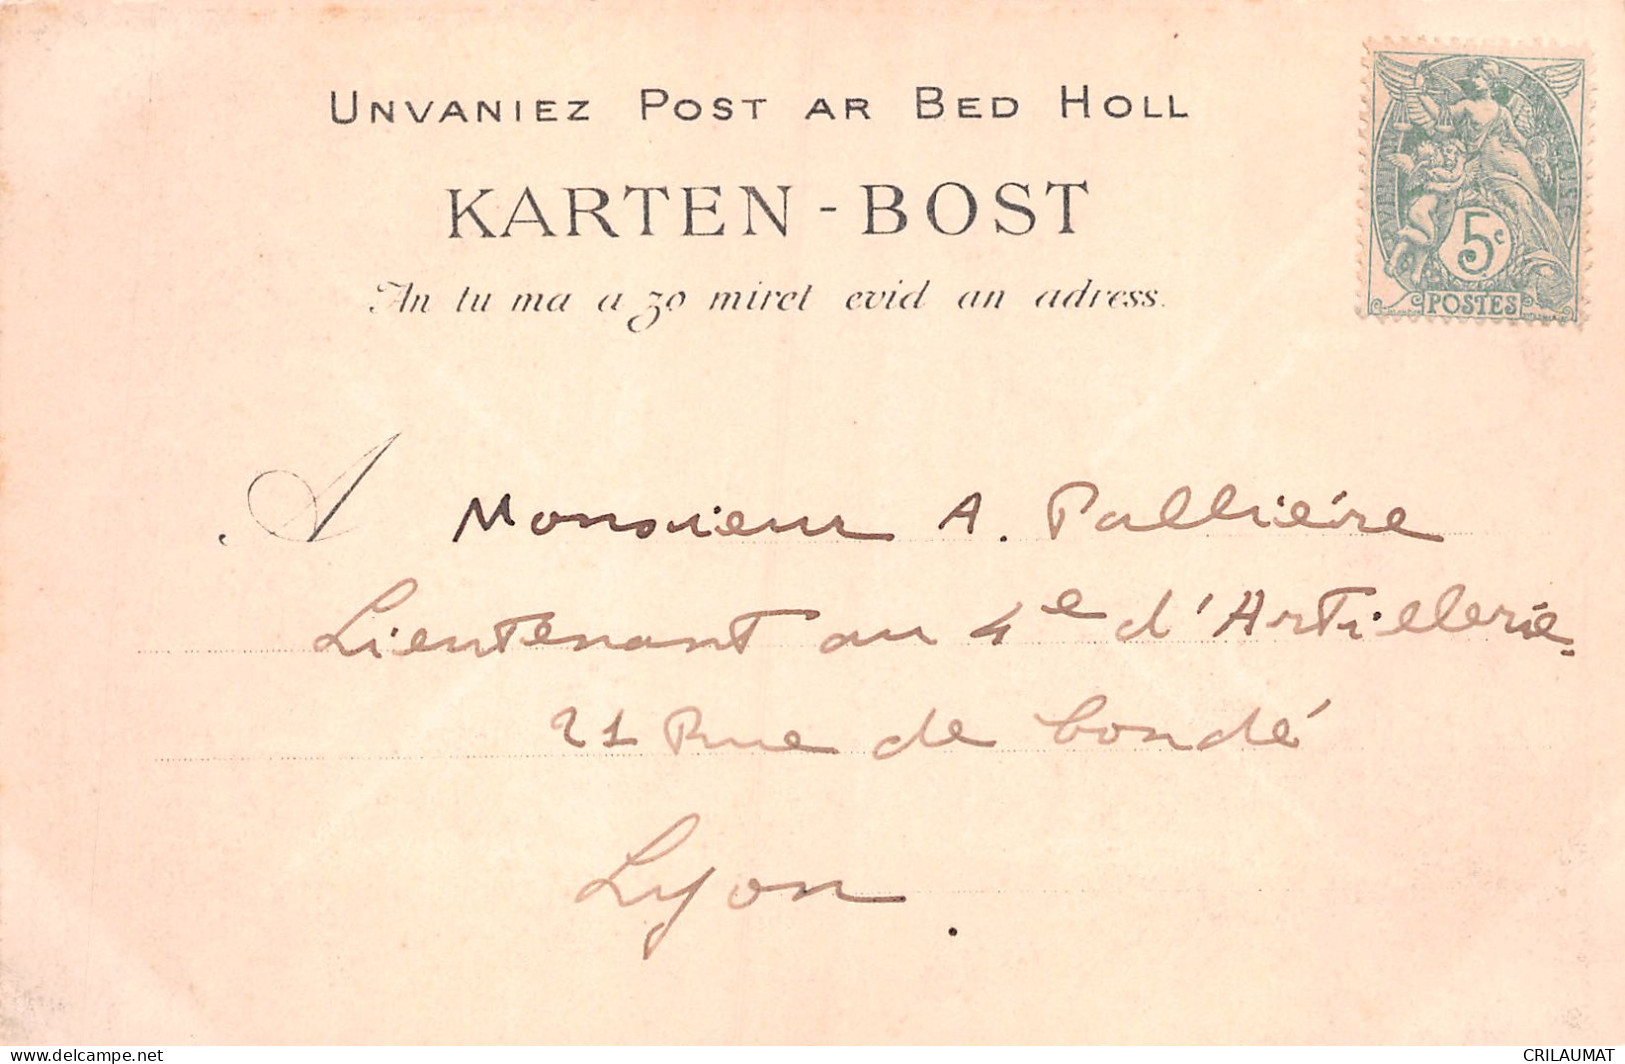 UNVANIEZ POST AR BED HOLL
KARTEN-BOST
An tu ma a zo miret evid an adress.
5c
POSTES
A Monsieur A. Pallière
Lieutenant au 4e d'Artillerie
21 Rue de Condé
Lyon.
www.delcampe.net
CRILAUMAT